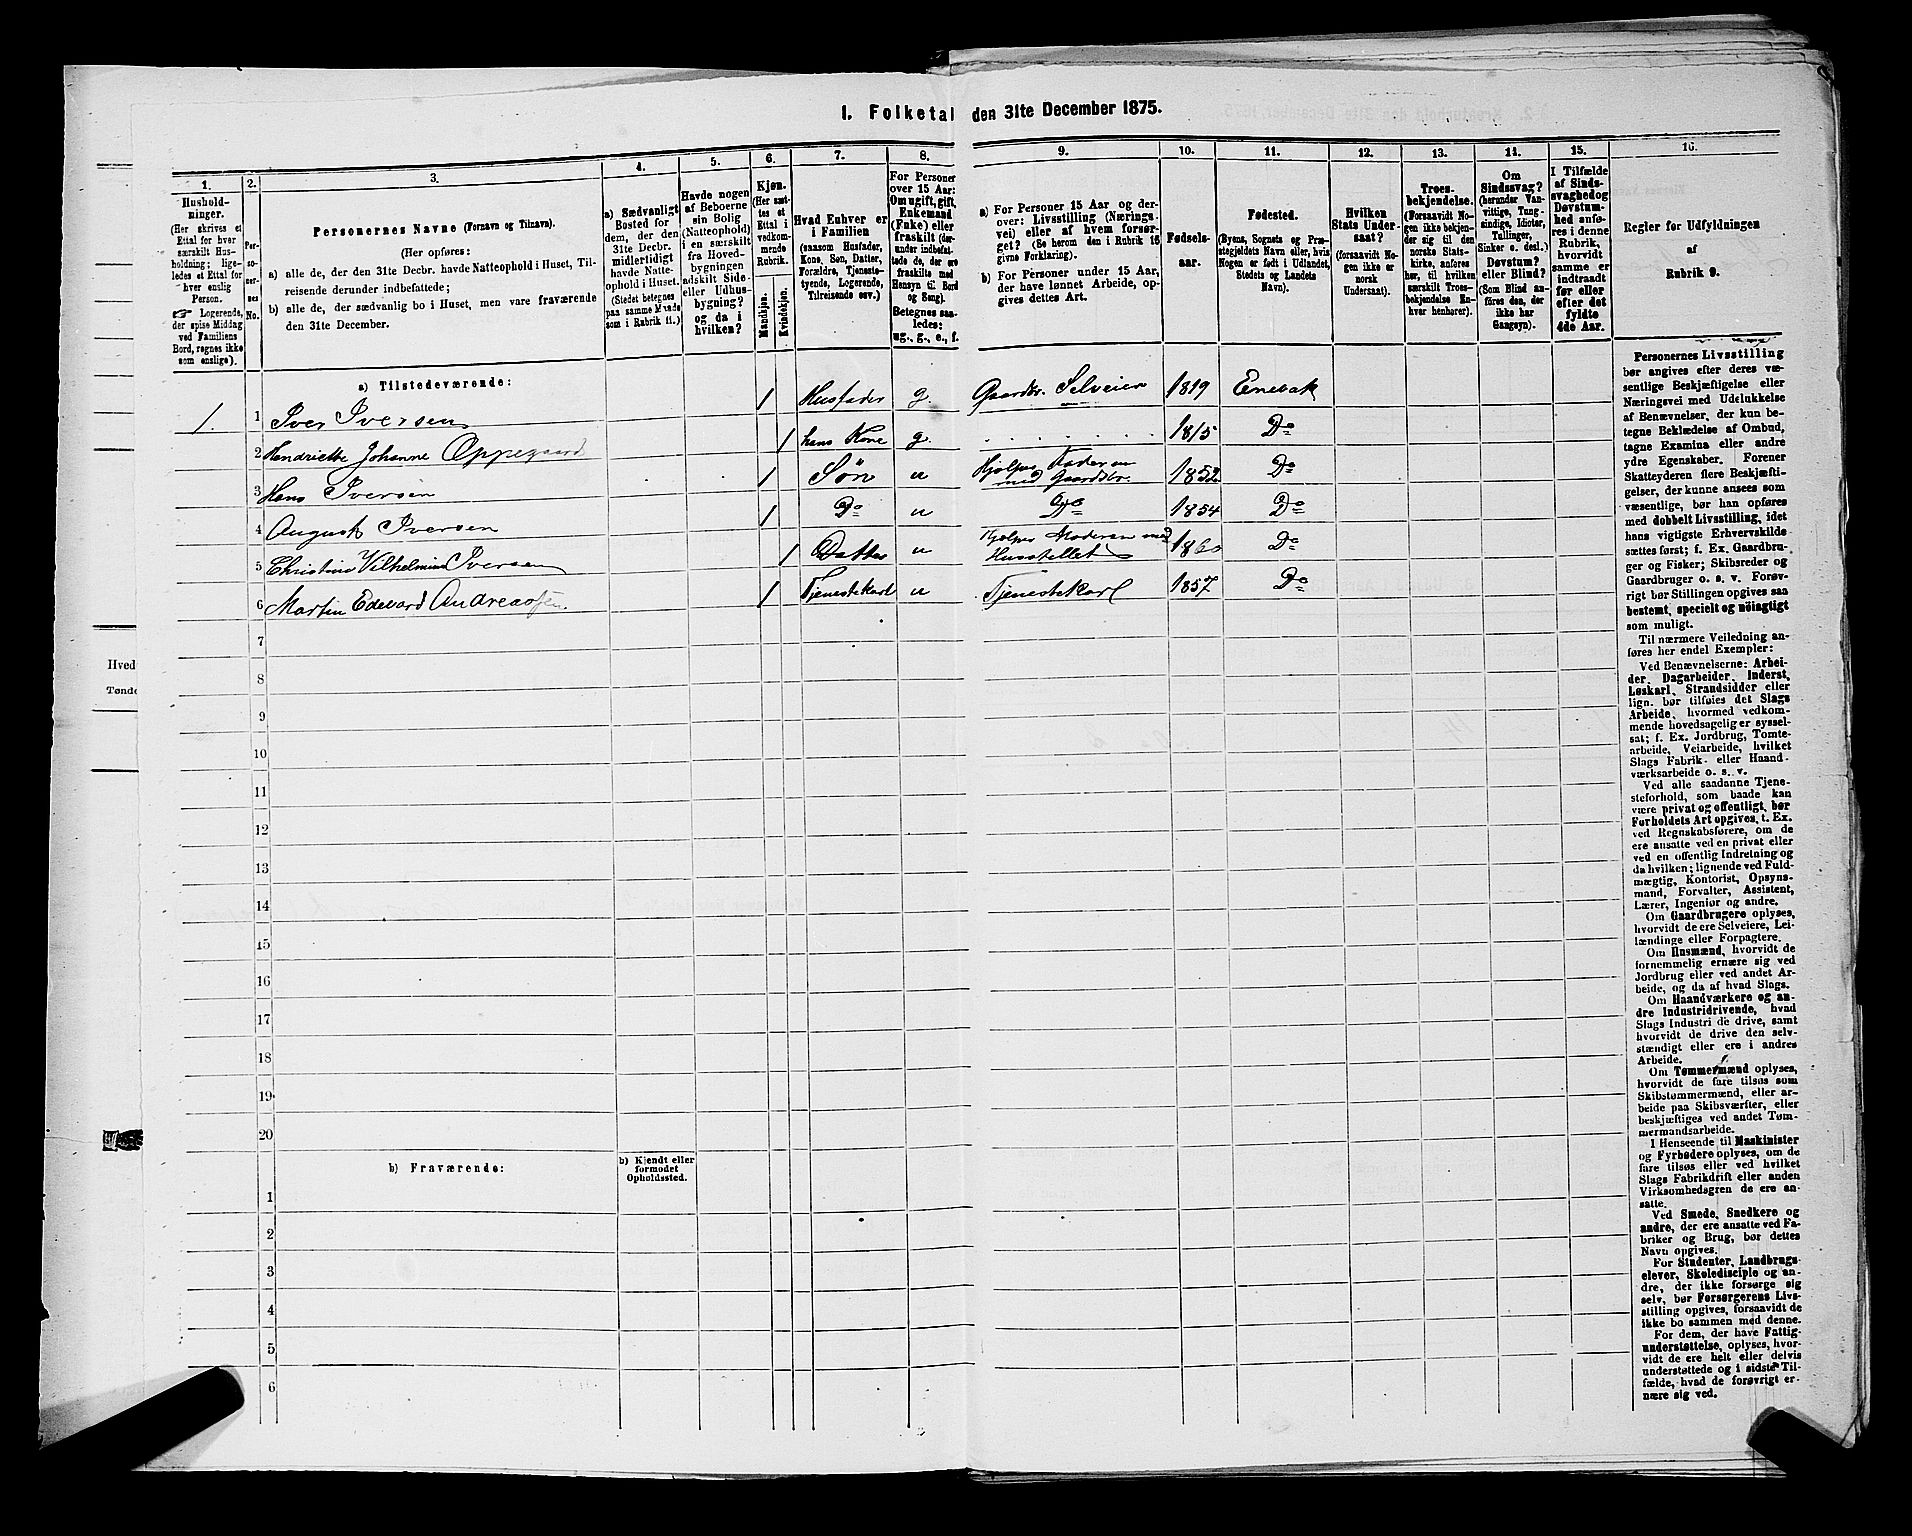 I. Folketal den 31te December 1875.
1.
2.
3.
4.
5.
6.
7.
8.
9.
10.
11.
12.
13.
14.
15.
16.
Husholdninger.
(Her skrives et
Ettal for hver
særskilt Husholdning;
ligeledes et Ettal for
hver enslig
Person.
☞ Logerende,
der spise Middag
ved Familiens
Bord, regnes ikke
som enslige).
Personernes No.
Personernes Navne (Fornavn og Tilnavn).
(Her opføres:
a) alle de, der den 31te Decbr. havde Natteophold i Huset, Tilreisende derunder indbefattede;
b) alle de, der sædvanlig bo i Huset, men vare fraværende
den 31te December.
a) Sædvanligt
Bosted for
dem, der den
31te Decbr.
midlertidigt
havde Natteophold i Huset.
(Stedet betegnes
paa samme Maade
som i Rubrik 11.)
Havde nogen
af Beboerne
sin Bolig
(Natteophold)
i en særskilt
fra Hovedbygningen
adskilt Side-
eller Udhusbygning?
og da i
hvilken?
Kjøn.
(Her sættes et
Ettal i
vedkommende
Rubrik.
Mandkjøn.
Kvindekjøn.
Hvad Enhver er
i Familien
(saasom Husfader,
Kone, Søn, Datter,
Forældre, Tjenestetyende, Logerende,
Tilreisende osv.)
For Personer
over 15 Aar:
Om ugift, gift,
Enkemand
(Enke) eller
fraskilt (derunder indbefattede de, der ere
fraskilte med
Hensyn til Bord
og Seng).
Betegnes saaledes:
ug., g., e., f.
a) For Personer 15 Aar og derover: Livsstilling (Næringsvei) eller af hvem forsørget? (Se herom den i Rubrik 16
givne Forklaring).
b) For Personer under 15 Aar,
der have lønnet Arbeide, opgives dettes Art.
Fødselsaar.
Fødested.
(Byens, Sognets og Præstegjeldets Navn eller, hvis
Nogen er født i Udlandet,
Stedets og Landets
Navn).
Hvilken
Stats Undersaat?
(forsaavidt Nogen ikke er
norsk
Undersaat).
Troesbekjendelse.
(Forsaavidt Nogen ikke bekjender sig til den
norske Statskirke, anføres
her, til hvilken
særskilt Troesbekjendelse Enhver henhører).
Om
Sindssvag?
(herunder Vanvittige, Tungsindige, Idioter,
Tullinger,
Sinker o. desl.)
Døvstum?
eller Blind?
(Som Blind anføres den, der
ikke har
Gangsyn).
I Tilfælde
af Sindssvaghed og
Døvstumhed anføres i denne
Rubrik,
hvorvidt
samme er
indtraadt
før eller
efter det
fyldte
4de Aar.
Regler for Udfyldningen
af
Rubrik 9.
a) Tilstedeværende:
1. 1 Iver Iversen 1 Husfader g. Gaardbr. Selveier 1819 Enebak
2 Henriette Johanne Oppegaard 1 hans Kone g. 1815 Do
3 Hans Iversen 1 Søn u Hjælper Faderen
med Gaardsbr. 1852 Do
4 August Iversen 1 Do u Do 1854 Do
5 Christine Vilhelmine Iversen 1 Datter u Hjelper Moderen med
Husstellet 1860 Do
6 Martin Edevard Andreassen 1 Tjenestekarl u Tjenestekarl 1857 Do
7
8
9
10
11
12
13
14
15
16
17
18
19
20
b) Fraværende:
b) Kjendt eller
formodet
Opholdssted.
1
2
3
4
5
6
Personernes Livsstilling
bør angives efter deres væsentlige Beskjæftigelse eller
Næringsvei med Udelukkelse
af Benævnelser, der kun betegne Beklædelse af Ombud,
tagne Examina eller andre
ydre Egenskaber. Forener
Skatteyderen flere Beskjæftigelser, der kunne ansees som
væsentlige, bør han opføres
med dobbelt Livsstilling, idet
hans vigtigste Erhvervskilde
sættes først; f. Ex. Gaardbruger og Fisker; Skibsreder og
Gaardbruger o. s. v. Forøvrigt bør Stillingen opgives saa
bestemt, specielt og nöiagtigt
som muligt.
Til nærmere Veiledning anføres her endel Exempler:
Ved Benævnelserne: Arbeider, Dagarbeider, Inderst,
Løskarl, Strandsidder eller
lign. bør tilføies det Slags
Arbeide, hvormed vedkommende hovedsagelig er sysselsat; f. Ex. Jordbrug, Tomtearbeide, Veiarbeide, hvilket
Slags Fabrik- eller Haandværksarbeide o. s. v.
Ved alle saadanne Tjenesteforhold, som baade kan
være privat og offentligt, bør
Forholdets Art opgives, t. Ex.
ved Regnskabsførere, om de
ere ansatte ved en privat eller
ved en offentlig Indretning og
da hvilken; lignende ved Fuldmægtig, Kontorist, Opsynsmand, Forvalter, Assistent,
Lærer, Ingeniør og andre.
Om Gaardbrugere oplyses,
hvorvidt de ere Selveiere, Leilændinge eller Forpagtere.
Om Husmænd, hvorvidt de
fornemmelig ernære sig ved
Jordbrug eller ved andet Arbeide, og da af hvad Slags.
Om Haandværkere og andre Industridrivende, hvad
Slags Industri de drive, samt
hvorvidt de drive den selvstændigt eller ere i andres
Arbeide.
Om Tømmermænd oplyses,
hvorvidt de fare tilsøs som
Skibstømmermænd, eller arbeide paa Skibsværfter, eller
beskjæftiges ved andet Tømmermandsarbeide.
I Henseende til Maskinister
og Fyrbødere oplyses, om de
fare tilsøs eller ved hvilket
Slags Fabrikdrift eller anden
Virksomhedsgren de ere ansatte.
Ved Smede, Snedkere og
andre, der ere ansatte ved Fabriker og Brug, bør dettes
Navn opgives.
For Studenter, Landbrugselever, Skoledisciple og andre, der ikke forsørge sig
selv, bør Forsørgerens Livsstilling opgives, forsaavidt de
ikke bo sammen med denne.
For dem, der have Fattigunderstøttelse, oplyses, hvorvidt de ere helt eller delvis
understøttede og i sidste Tilfælde, hvad de forøvrigt ernære sig ved.
Hved
Tønde